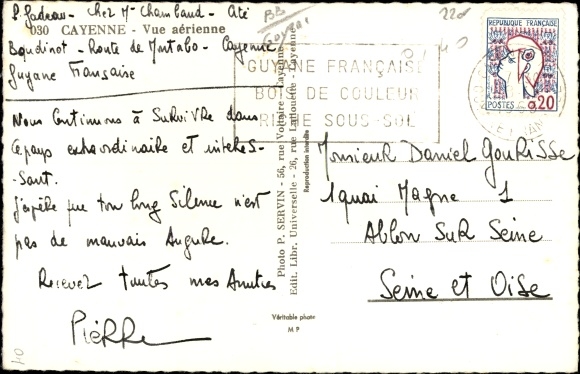 P. Jadeau - Chez Mr Chambaud - Cité
030 CAYENNE - Vue aérienne
Boudinot - Route de Montabo - Cayenne
Guyane Française
Nous Continuons à Survivre dans
ce pays extraordinaire et intéres-
-sant.
J'espère que ton long Silence n'est
pas de mauvais Augure.
Recevez toutes mes Amitiés
Pierre
Photo P. SERVIN - 56, rue Voltaire - Cayenne
Edit. Libr. Universelle - 26, rue Lallouette Cayenne
Reproduction interdite
Véritable photo
M P
BB
Guyane
22d
GUYANE FRANÇAISE
BOIS DE COULEUR
RICHE SOUS-SOL
REPUBLIQUE FRANÇAISE
POSTES 0,20
Monsieur Daniel Gourisse
1 quai Magne 1
Ablon Sur Seine
Seine et Oise